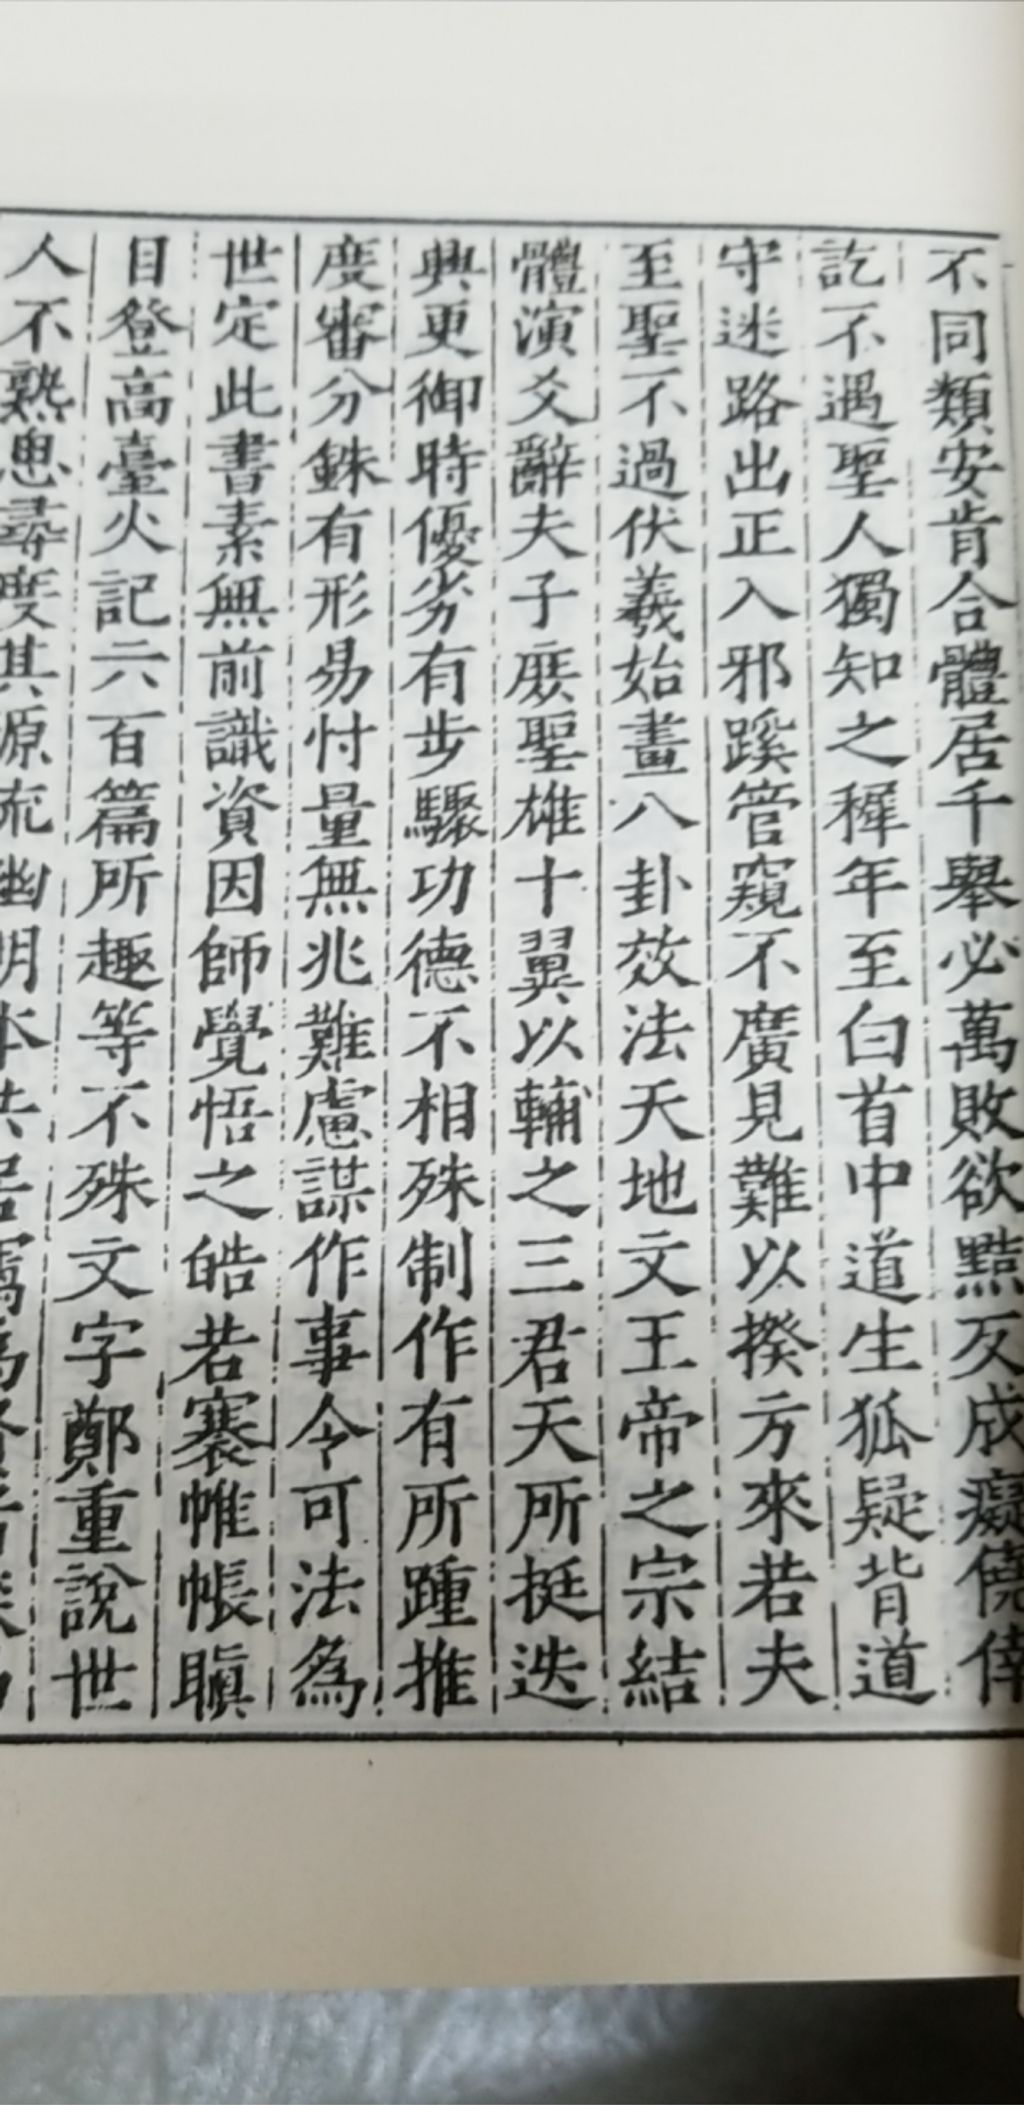 不同類安肯合體居千舉必萬敗欲黠反成癡僥倖
訖不遇聖人獨知之穉年至白首中道生狐疑背道
守迷路出正入邪蹊管窺不廣見難以揆方來若夫
至聖不過伏羲始畫八卦效法天地文王帝之宗結
體演爻辭夫子庶聖雄十翼以輔之三君天所挺迭
興更御時優劣有步驟功德不相殊制作有所踵推
度審分銖有形易忖量無兆難慮謀作事令可法為
世定此書素無前識資因師覺悟之皓若褰帷帳瞋
目登高臺火記六百篇所趣等不殊文字鄭重說世
人不熟思尋度其源流幽明本共居